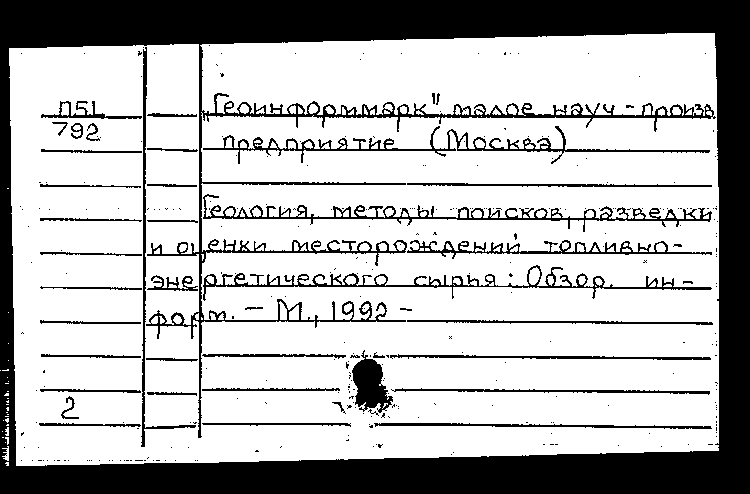 П51
792
„Геоинформмарк", малое науч-произв
предприятие (Москва)
Геология, методы поисков, разведки
и оценки месторождений топливно-
энергетического сырья: Обзор. ин-
форм. - М., 1992 -
2